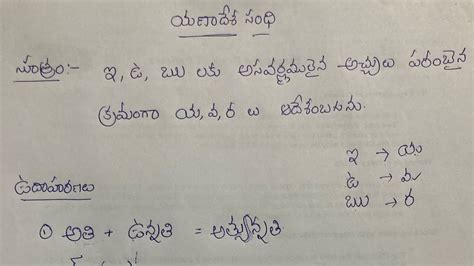 యణాదేశ సంధి
సూత్రం:- ఇ, ఉ, ఋ లకు అసవర్ణములైన అచ్చులు పరంబైన
క్రమంగా య, వ, ర లు ఆదేశంబగును.
ఇ → య
ఉ → వ
ఋ → ర
ఉదాహరణలు
① అతి + ఉన్నతి = అత్యున్నతి